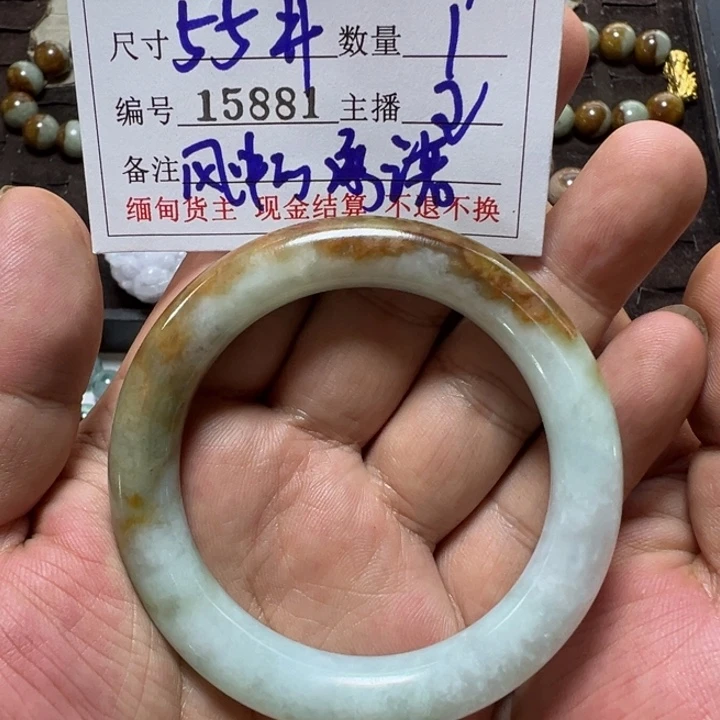 尺寸 55 数量 1
编号 15881 主播 2
备注
缅甸货主 现金结算 不退不换